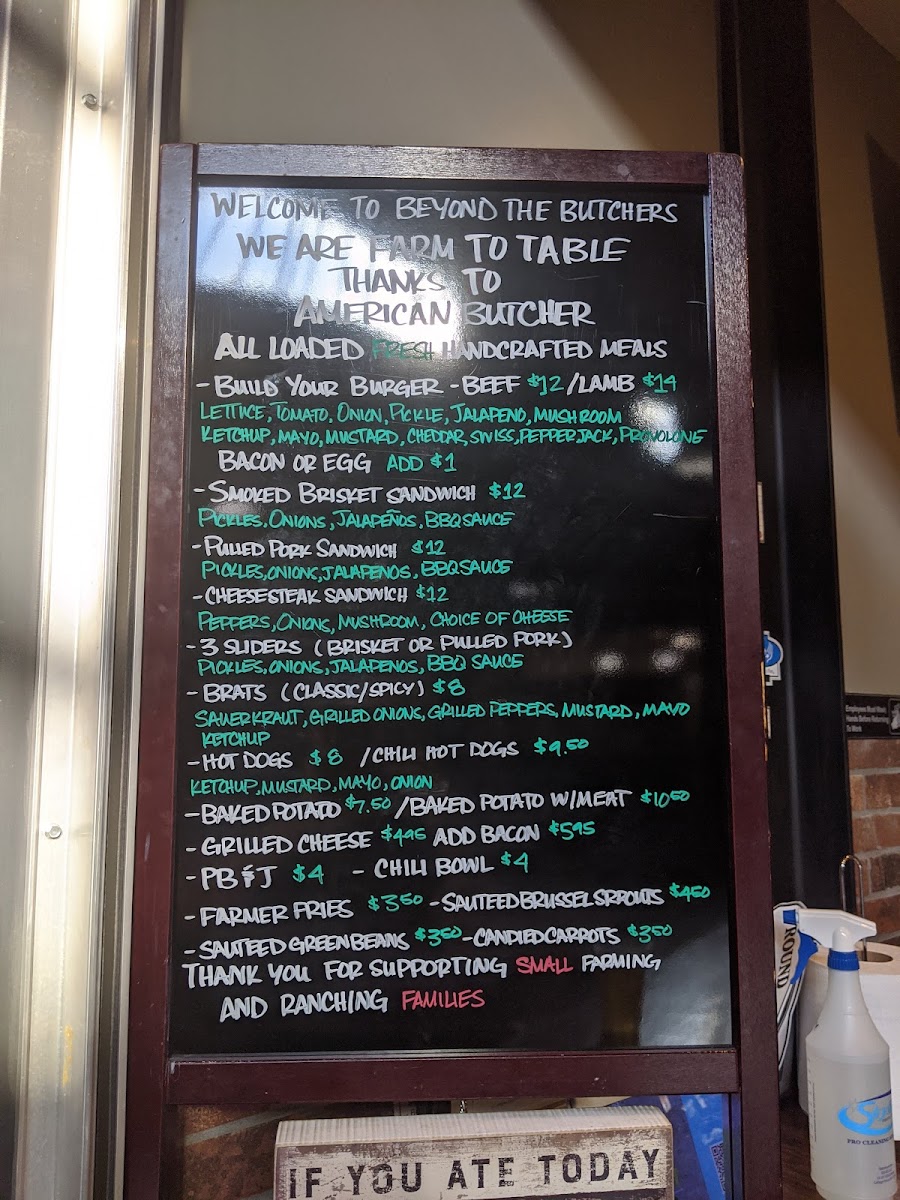 WELCOME TO BEYOND THE BUTCHERS
WE ARE FARM TO TABLE
THANKS TO
AMERICAN BUTCHER
ALL LOADED FRESH HANDCRAFTED MEALS
- BUILD YOUR BURGER - BEEF $12 / LAMB $14
LETTUCE, TOMATO, ONION, PICKLE, JALAPENO, MUSHROOM
KETCHUP, MAYO, MUSTARD, CHEDDAR, SWISS, PEPPER JACK, PROVOLONE
BACON OR EGG ADD $1
- SMOKED BRISKET SANDWICH $12
PICKLES, ONIONS, JALAPEÑOS, BBQ SAUCE
- PULLED PORK SANDWICH $12
PICKLES, ONIONS, JALAPENOS, BBQ SAUCE
- CHEESESTEAK SANDWICH $12
PEPPERS, ONIONS, MUSHROOM, CHOICE OF CHEESE
- 3 SLIDERS (BRISKET OR PULLED PORK)
PICKLES, ONIONS, JALAPENOS, BBQ SAUCE
- BRATS (CLASSIC/SPICY) $8
SAUERKRAUT, GRILLED ONIONS, GRILLED PEPPERS, MUSTARD, MAYO
KETCHUP
- HOT DOGS $8 / CHILI HOT DOGS $9.50
KETCHUP, MUSTARD, MAYO, ONION
- BAKED POTATO $7.50 / BAKED POTATO W/MEAT $1050
- GRILLED CHEESE $495 ADD BACON $595
- PB & J $4 - CHILI BOWL $4
- FARMER FRIES $350 - SAUTEED BRUSSEL SPROUTS $450
- SAUTEED GREEN BEANS $350 - CANDIED CARROTS $350
THANK YOU FOR SUPPORTING SMALL FARMING
AND RANCHING FAMILIES
IF YOU ATE TODAY
Employees Must Wash
Hands Before Returning
To Work
ROUND
PRO CLEANING